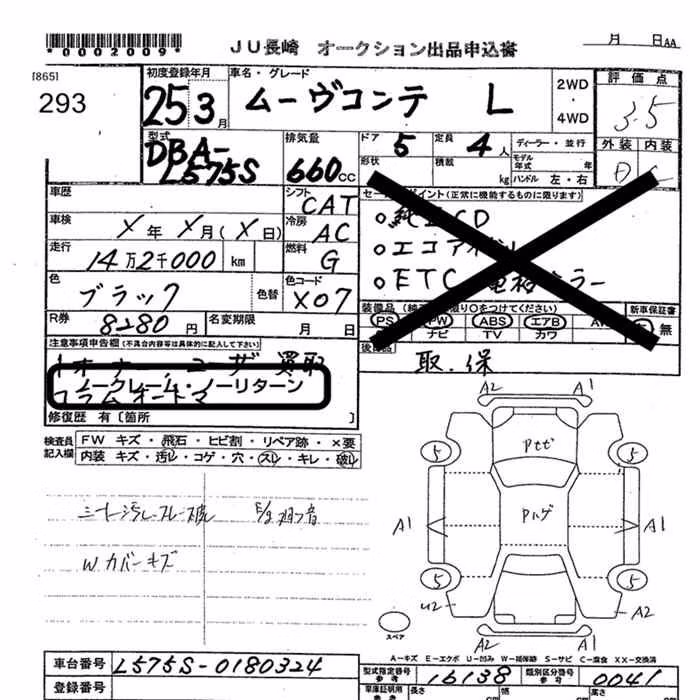 *0002009*
JU長崎 オークション出品申込書
月 日AA
[865]
293
初度登録年月
25 3月
車名・グレード
ムーヴコンテ L
2WD
・
4WD
評価点
3.5
外装 内装
D C
型式
DBA-
L575S
排気量
660cc
ドア 5
定員 4人
ディーラー・並行
形状
積載 kg
モデル年式 年
ハンドル 左・右
車歴
シフト
CAT
車検
X年 X月(X日)
冷房
AC
走行
14万2千000 km
燃料
G
色
ブラック
色替
色コード
X07
R券
8280円
名変期限 月 日
セールスポイント(正常に機能するものに限ります)
CD
エコア
ETC ラー
新車保証書
PS PW ABS エアB AW
ナビ TV カワ
無
後日品
取.保
注意事項申告欄(不具合内容等は具体的に記入して下さい)
1オーナー 買取
ノークレーム・ノーリターン
修復歴 有[箇所 ]
検査員記入欄
FW キズ・飛石・ヒビ割・リペア跡・×要
内装 キズ・汚レ・コゲ・穴・スレ・キレ・破レ
Wカバーキズ
A2 A1
5 5
A1 A1
5 5
U2 A2
A2 A1
スペア
A-キズ E-エクボ U-凹み W-補修跡 S-サビ C-腐食 XX-交換済
車台番号 L575S-0180324
登録番号
型式指定番号参考 16138
類別区分番号参考 0041
車庫証明用参考 長さ cm 幅 cm 高さ cm